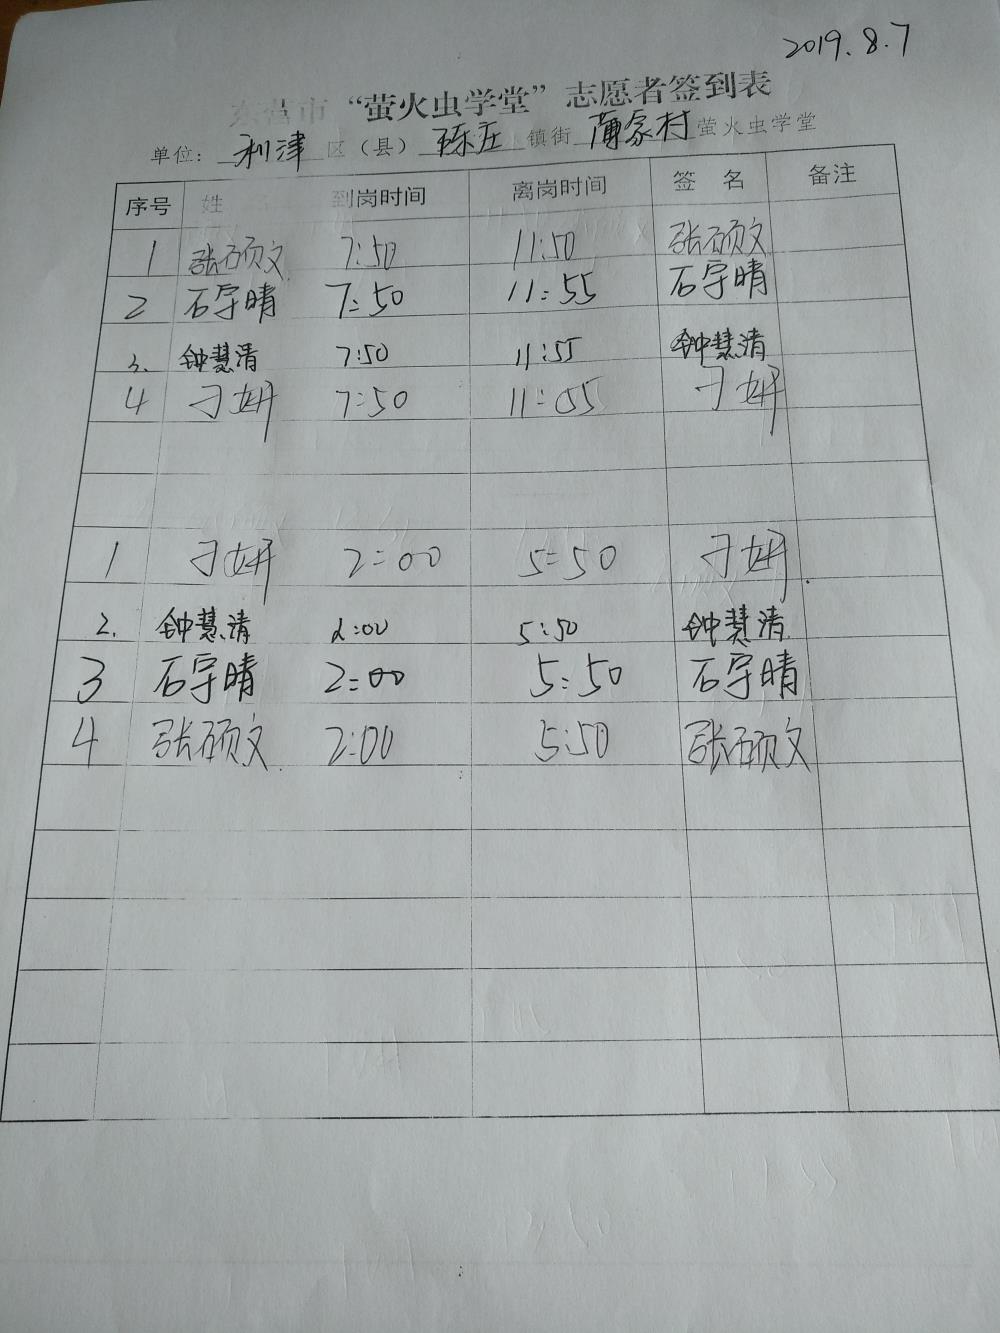 2019.8.7
东营市“萤火虫学堂”志愿者签到表
单位：利津区（县）陈庄镇街薄家村萤火虫学堂
序号 姓 到岗时间 离岗时间 签 名 备注
1 张硕文 7:50 11:50 张硕文
2 石宇晴 7:50 11:55 石宇晴
3. 钟慧清 7:50 11:55 钟慧清
4 刁妍 7:50 11:55 刁妍
1 刁妍 2:00 5:50 刁妍
2. 钟慧清 2:00 5:50 钟慧清
3 石宇晴 2:00 5:50 石宇晴
4 张硕文 2:00 5:50 张硕文